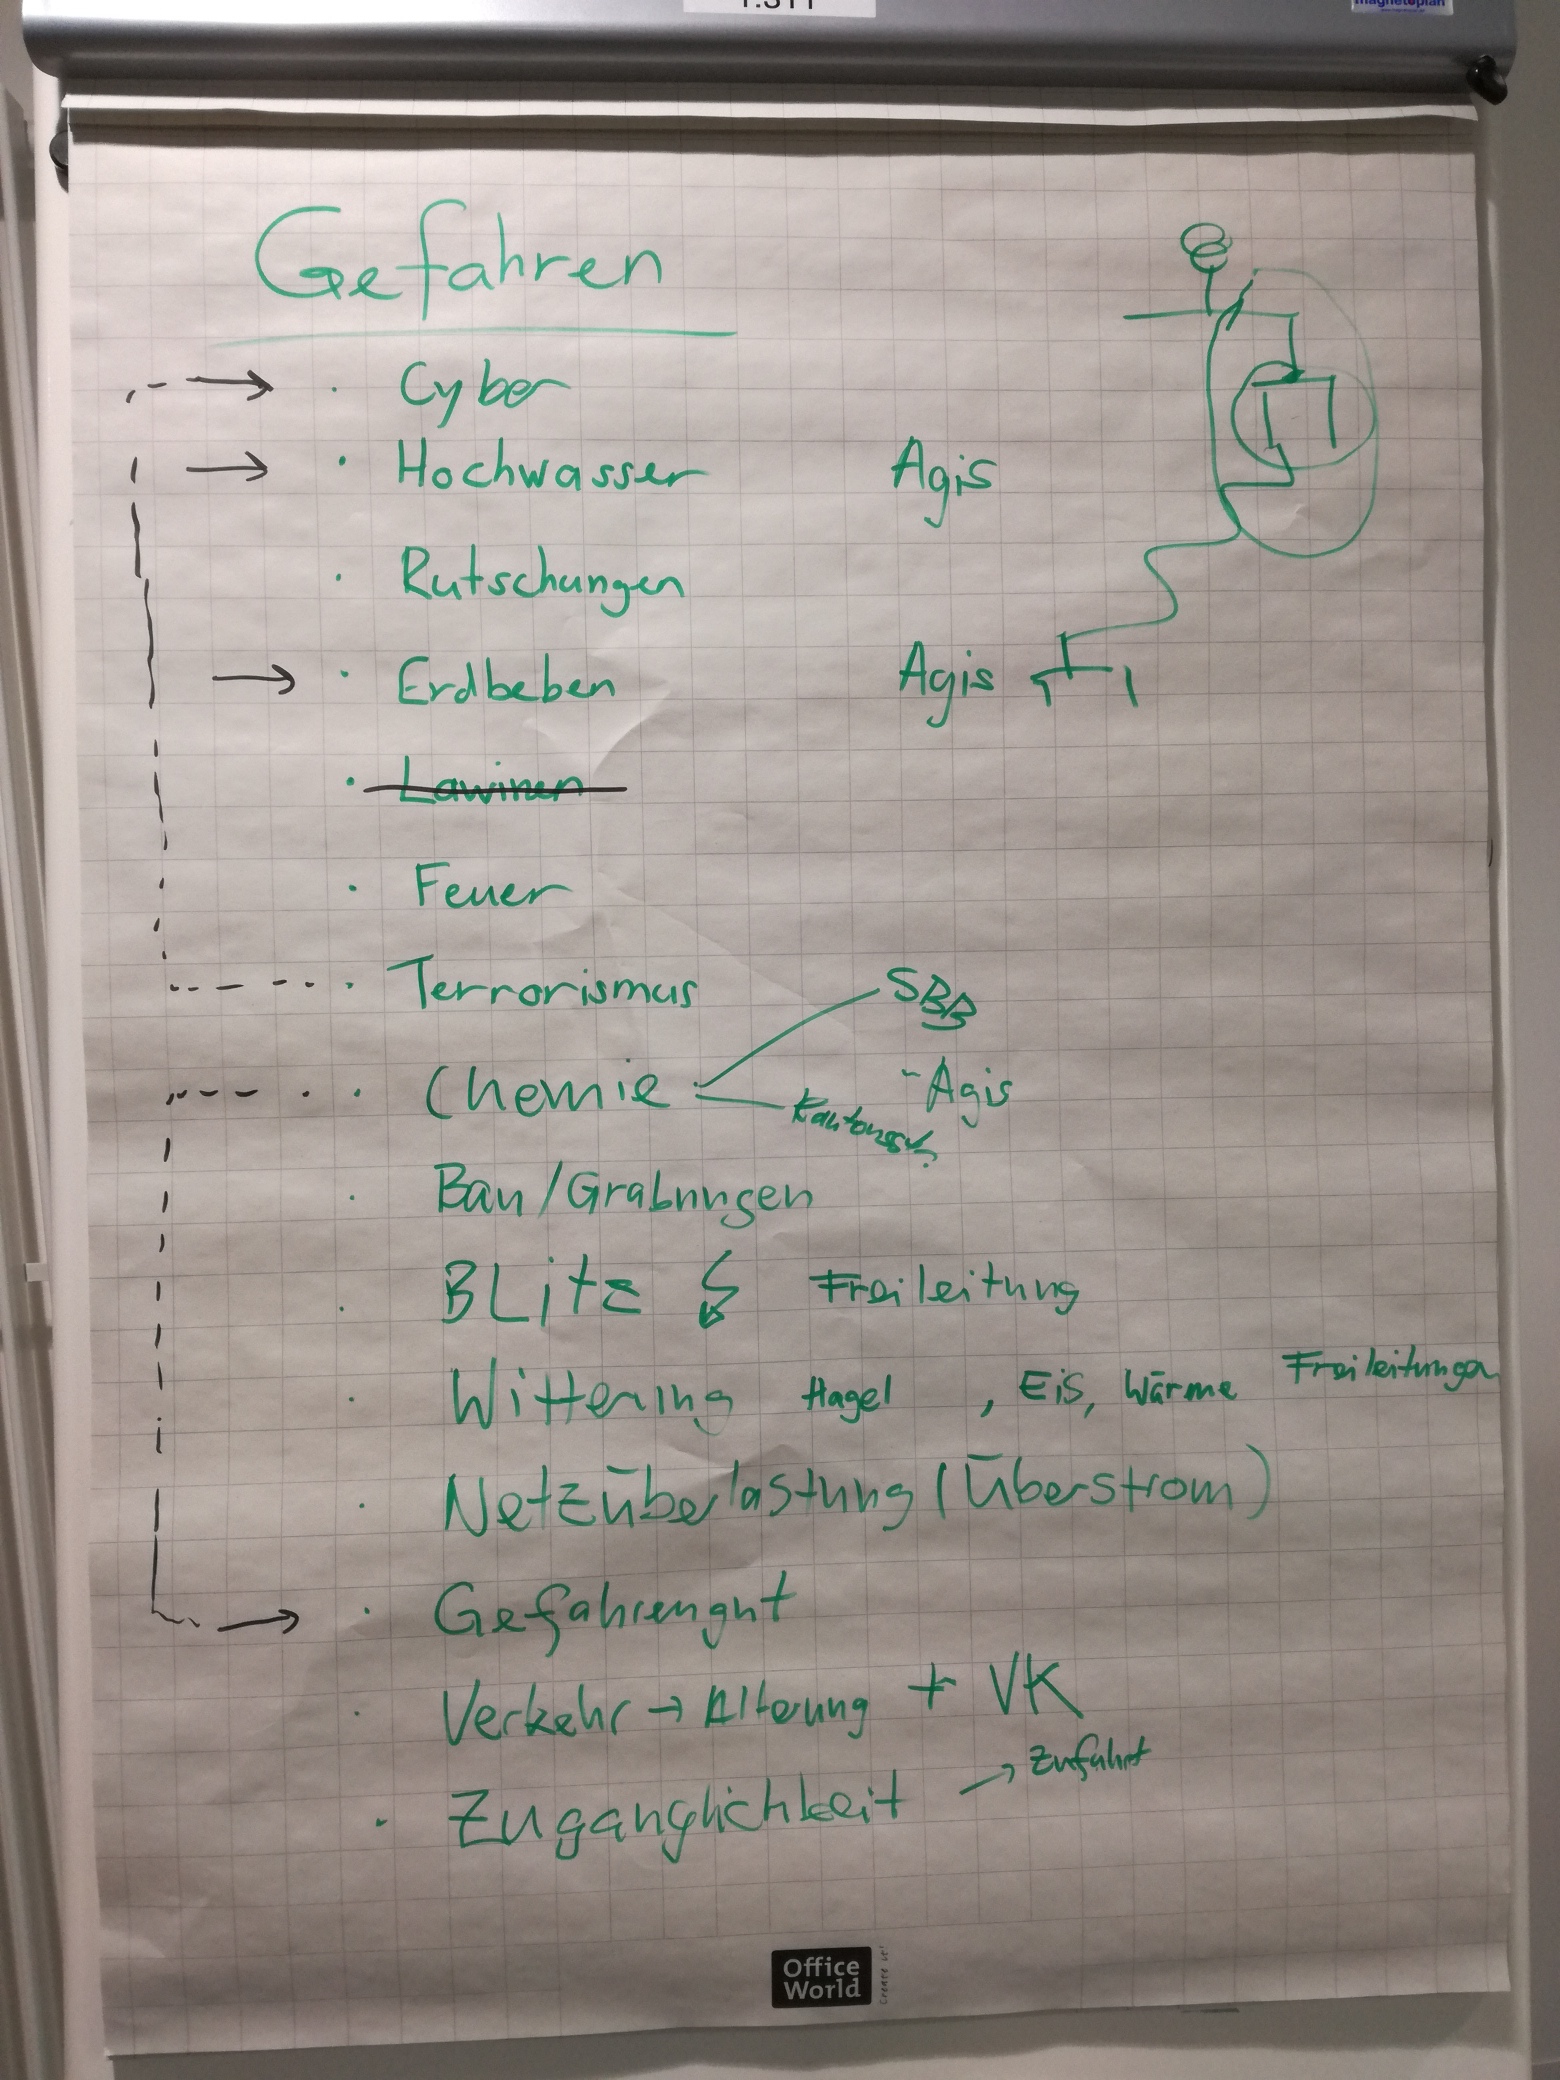 1.311
magnetoplan
Gefahren
Cyber
Hochwasser Agis
Rutschungen
Erdbeben Agis
Lawinen
Feuer
Terrorismus SBB
Chemie - Agis
Bau/Grabungen
BLitz Freileitung
Witterung Hagel , Eis, Wärme Freileitungen
Netzüberlastung (Überstrom)
Gefahrengut
Verkehr → Alterung + VK
Zugänglichkeit → Zufahrt
Office
World